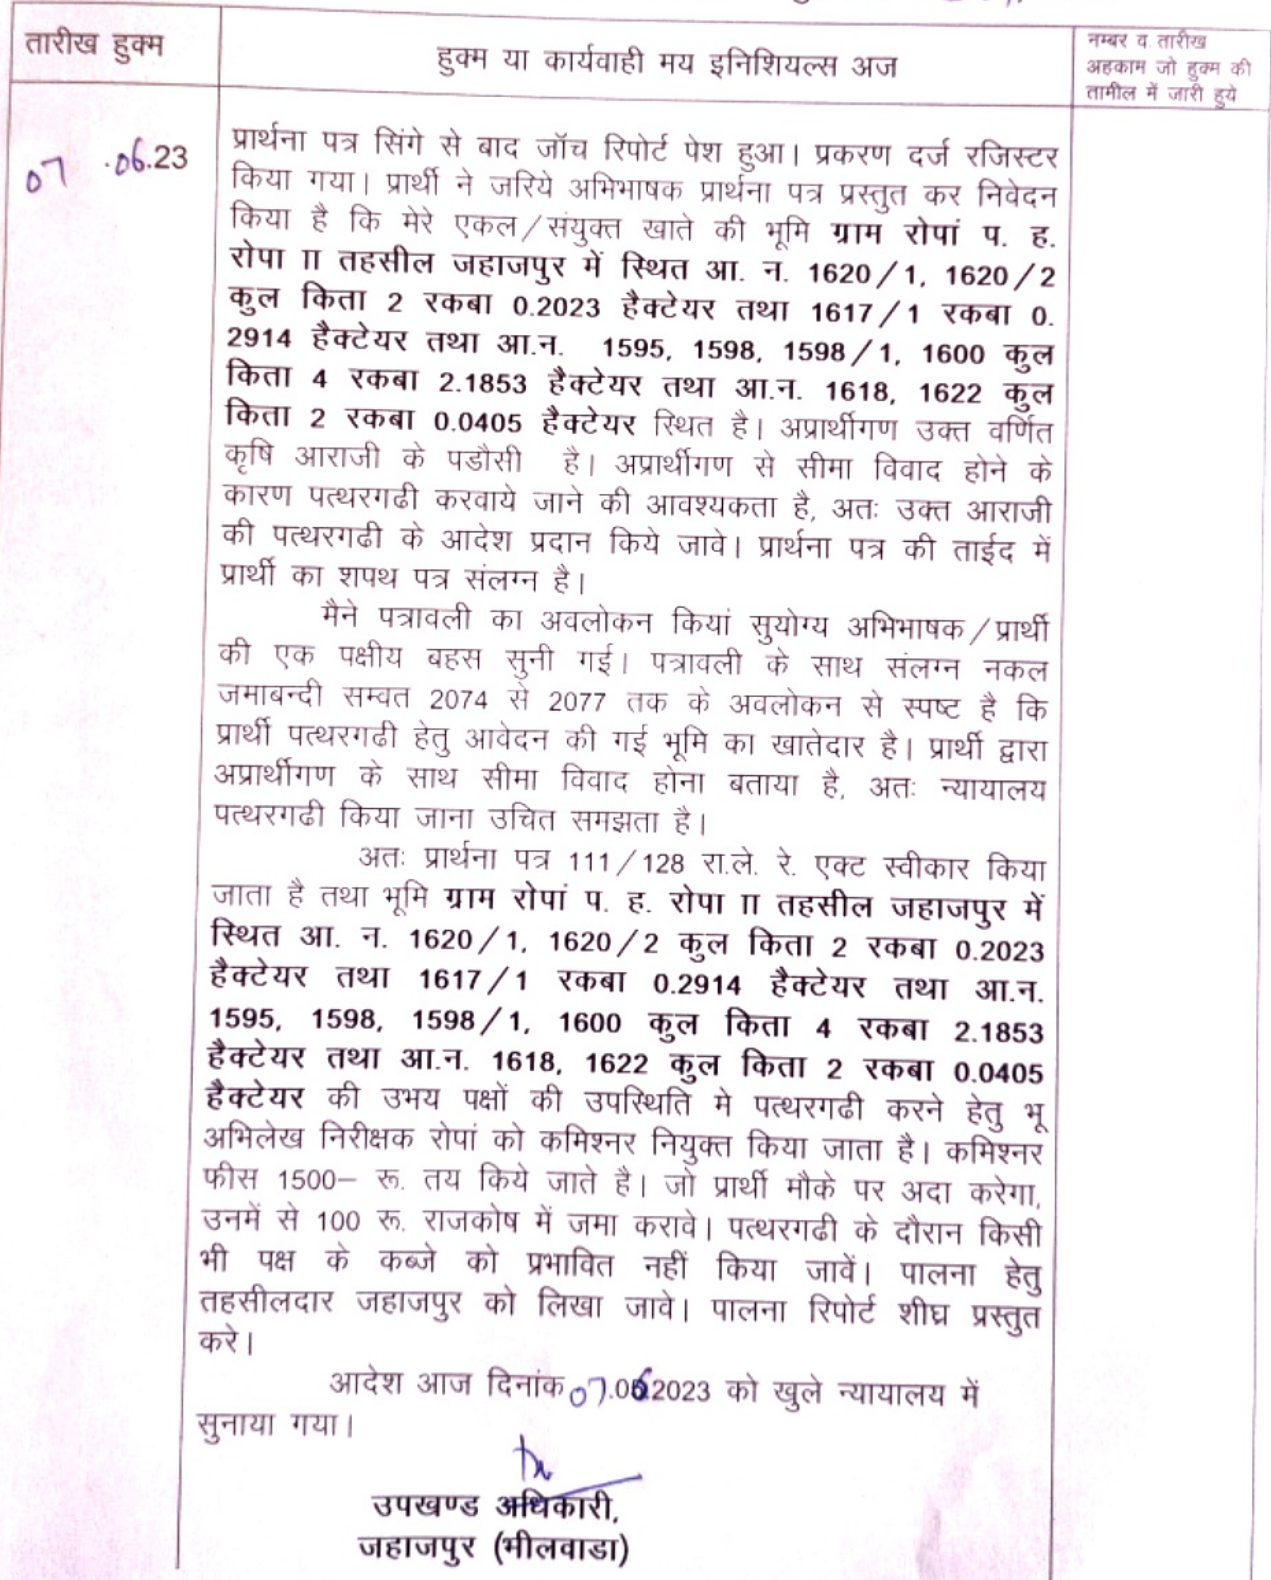 तारीख हुक्म
हुक्म या कार्यवाही मय इनिशियल्स अज
नम्बर व तारीख
अहकाम जो हुक्म की
तामील में जारी हुये
07 .06.23
प्रार्थना पत्र सिंगे से बाद जॉच रिपोर्ट पेश हुआ। प्रकरण दर्ज रजिस्टर
किया गया। प्रार्थी ने जरिये अभिभाषक प्रार्थना पत्र प्रस्तुत कर निवेदन
किया है कि मेरे एकल/संयुक्त खाते की भूमि ग्राम रोपां प. ह.
रोपा II तहसील जहाजपुर में स्थित आ. न. 1620/1, 1620/2
कुल किता 2 रकबा 0.2023 हैक्टेयर तथा 1617/1 रकबा 0.
2914 हैक्टेयर तथा आ.न. 1595, 1598, 1598/1, 1600 कुल
किता 4 रकबा 2.1853 हैक्टेयर तथा आ.न. 1618, 1622 कुल
किता 2 रकबा 0.0405 हैक्टेयर स्थित है। अप्रार्थीगण उक्त वर्णित
कृषि आराजी के पडौसी है। अप्रार्थीगण से सीमा विवाद होने के
कारण पत्थरगढी करवाये जाने की आवश्यकता है, अतः उक्त आराजी
की पत्थरगढी के आदेश प्रदान किये जावे। प्रार्थना पत्र की ताईद में
प्रार्थी का शपथ पत्र संलग्न है।
मैने पत्रावली का अवलोकन कियां सुयोग्य अभिभाषक/प्रार्थी
की एक पक्षीय बहस सुनी गई। पत्रावली के साथ संलग्न नकल
जमाबन्दी सम्वत 2074 से 2077 तक के अवलोकन से स्पष्ट है कि
प्रार्थी पत्थरगढी हेतु आवेदन की गई भूमि का खातेदार है। प्रार्थी द्वारा
अप्रार्थीगण के साथ सीमा विवाद होना बताया है, अतः न्यायालय
पत्थरगढी किया जाना उचित समझता है।
अतः प्रार्थना पत्र 111/128 रा.ले. रे. एक्ट स्वीकार किया
जाता है तथा भूमि ग्राम रोपां प. ह. रोपा II तहसील जहाजपुर में
स्थित आ. न. 1620/1, 1620/2 कुल किता 2 रकबा 0.2023
हैक्टेयर तथा 1617/1 रकबा 0.2914 हैक्टेयर तथा आ.न.
1595, 1598, 1598/1, 1600 कुल किता 4 रकबा 2.1853
हैक्टेयर तथा आ.न. 1618, 1622 कुल किता 2 रकबा 0.0405
हैक्टेयर की उभय पक्षों की उपस्थिति मे पत्थरगढी करने हेतु भू
अभिलेख निरीक्षक रोपां को कमिश्नर नियुक्त किया जाता है। कमिश्नर
फीस 1500– रू. तय किये जाते है। जो प्रार्थी मौके पर अदा करेगा,
उनमें से 100 रू. राजकोष में जमा करावे। पत्थरगढी के दौरान किसी
भी पक्ष के कब्जे को प्रभावित नहीं किया जावें। पालना हेतु
तहसीलदार जहाजपुर को लिखा जावे। पालना रिपोर्ट शीघ्र प्रस्तुत
करे।
आदेश आज दिनांक 07.06.2023 को खुले न्यायालय में
सुनाया गया।
उपखण्ड अधिकारी,
जहाजपुर (भीलवाडा)